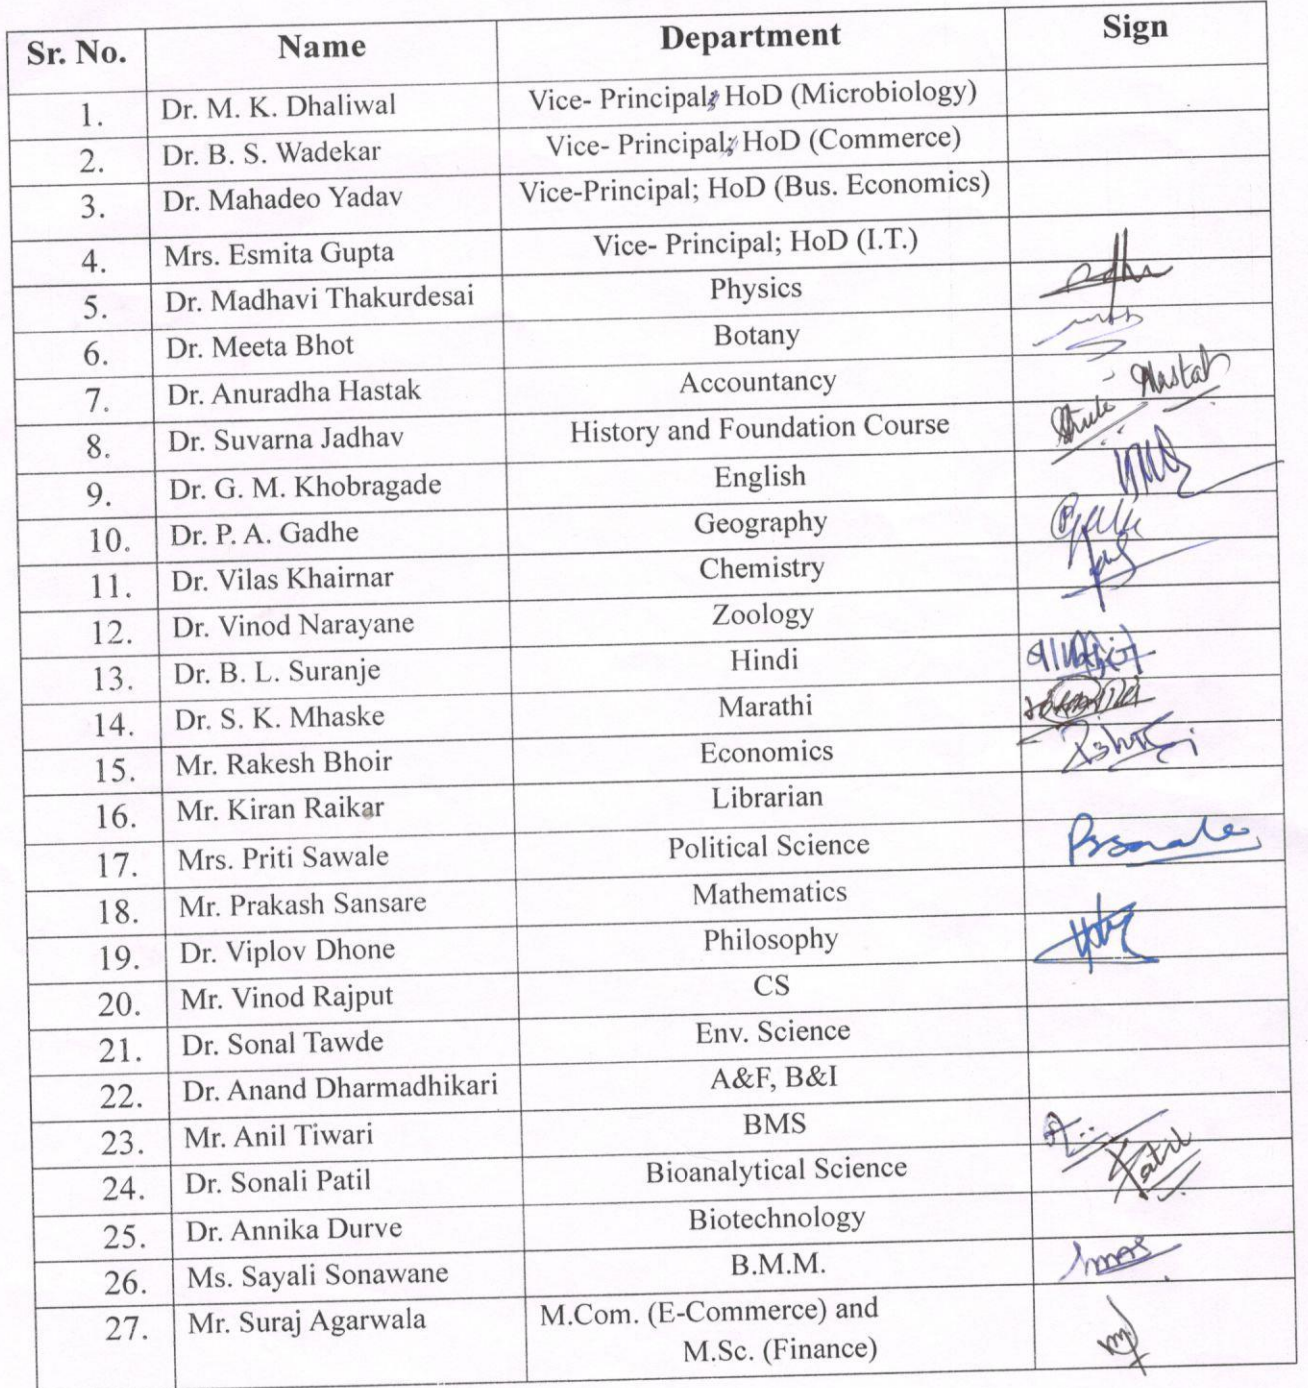 Sr. No. Name Department Sign
1. Dr. M. K. Dhaliwal Vice- Principal; HoD (Microbiology)
2. Dr. B. S. Wadekar Vice- Principal; HoD (Commerce)
3. Dr. Mahadeo Yadav Vice-Principal; HoD (Bus. Economics)
4. Mrs. Esmita Gupta Vice- Principal; HoD (I.T.)
5. Dr. Madhavi Thakurdesai Physics
6. Dr. Meeta Bhot Botany
7. Dr. Anuradha Hastak Accountancy Hastak
8. Dr. Suvarna Jadhav History and Foundation Course
9. Dr. G. M. Khobragade English
10. Dr. P. A. Gadhe Geography
11. Dr. Vilas Khairnar Chemistry
12. Dr. Vinod Narayane Zoology
13. Dr. B. L. Suranje Hindi
14. Dr. S. K. Mhaske Marathi
15. Mr. Rakesh Bhoir Economics
16. Mr. Kiran Raikar Librarian
17. Mrs. Priti Sawale Political Science
18. Mr. Prakash Sansare Mathematics
19. Dr. Viplov Dhone Philosophy
20. Mr. Vinod Rajput CS
21. Dr. Sonal Tawde Env. Science
22. Dr. Anand Dharmadhikari A&F, B&I
23. Mr. Anil Tiwari BMS
24. Dr. Sonali Patil Bioanalytical Science Patil
25. Dr. Annika Durve Biotechnology
26. Ms. Sayali Sonawane B.M.M.
27. Mr. Suraj Agarwala M.Com. (E-Commerce) and
M.Sc. (Finance)